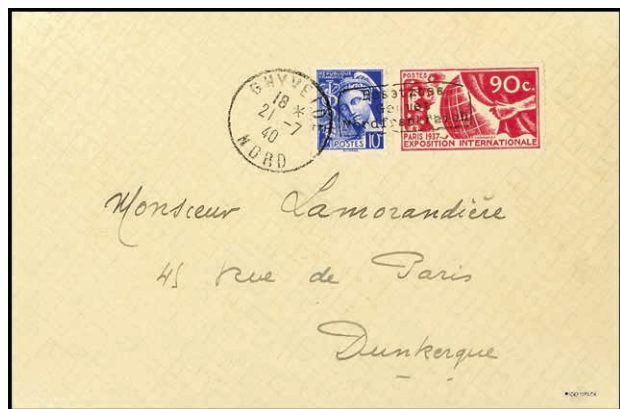 GHYVELDE
18 *
21 -7
40
NORD
RÉPUBLIQUE FRANÇAISE
POSTES
10c
Besetztes
Gebiet
Nordfrankreich
POSTES
90c.
PARIS 1937
EXPOSITION INTERNATIONALE
Monsieur Lamorandière
45 Rue de Paris
Dunkerque